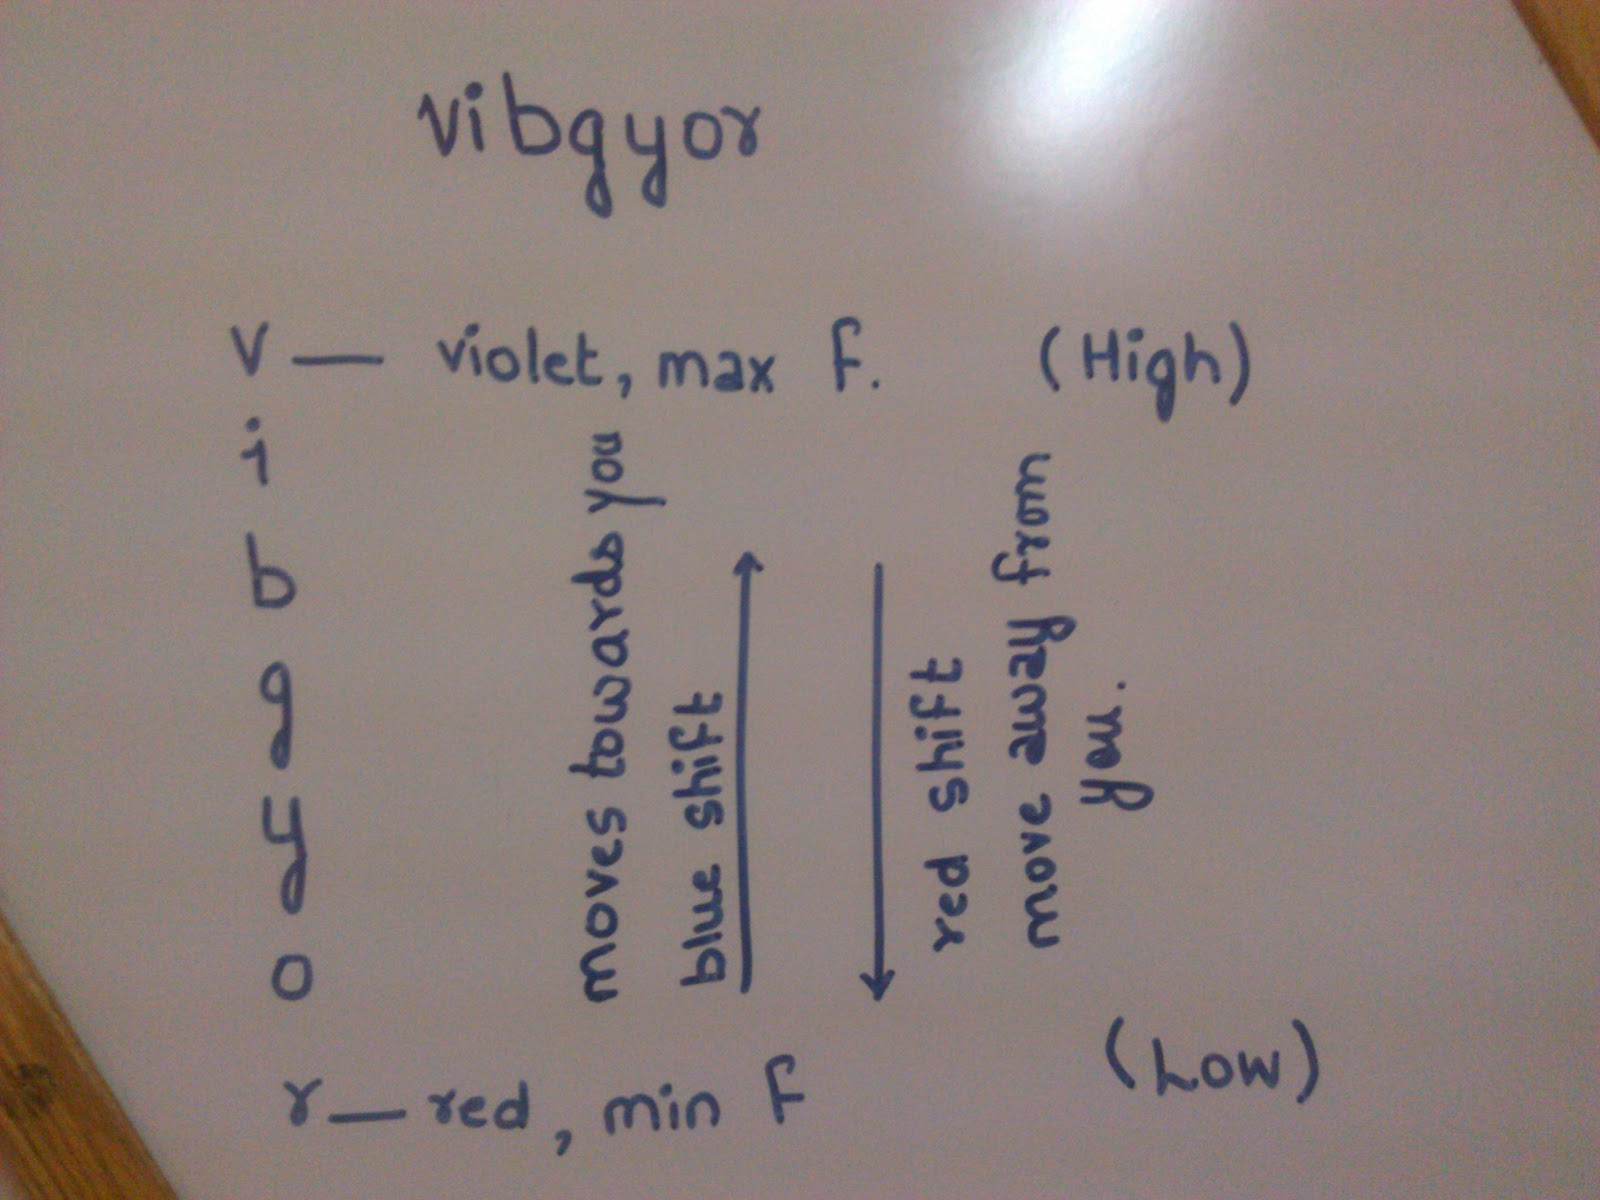 vibgyor
v — violet, max F. (High)
i
b
g
y
o
r — red, min F (Low)
moves towards you
blue shift
red shift
move away from
you.